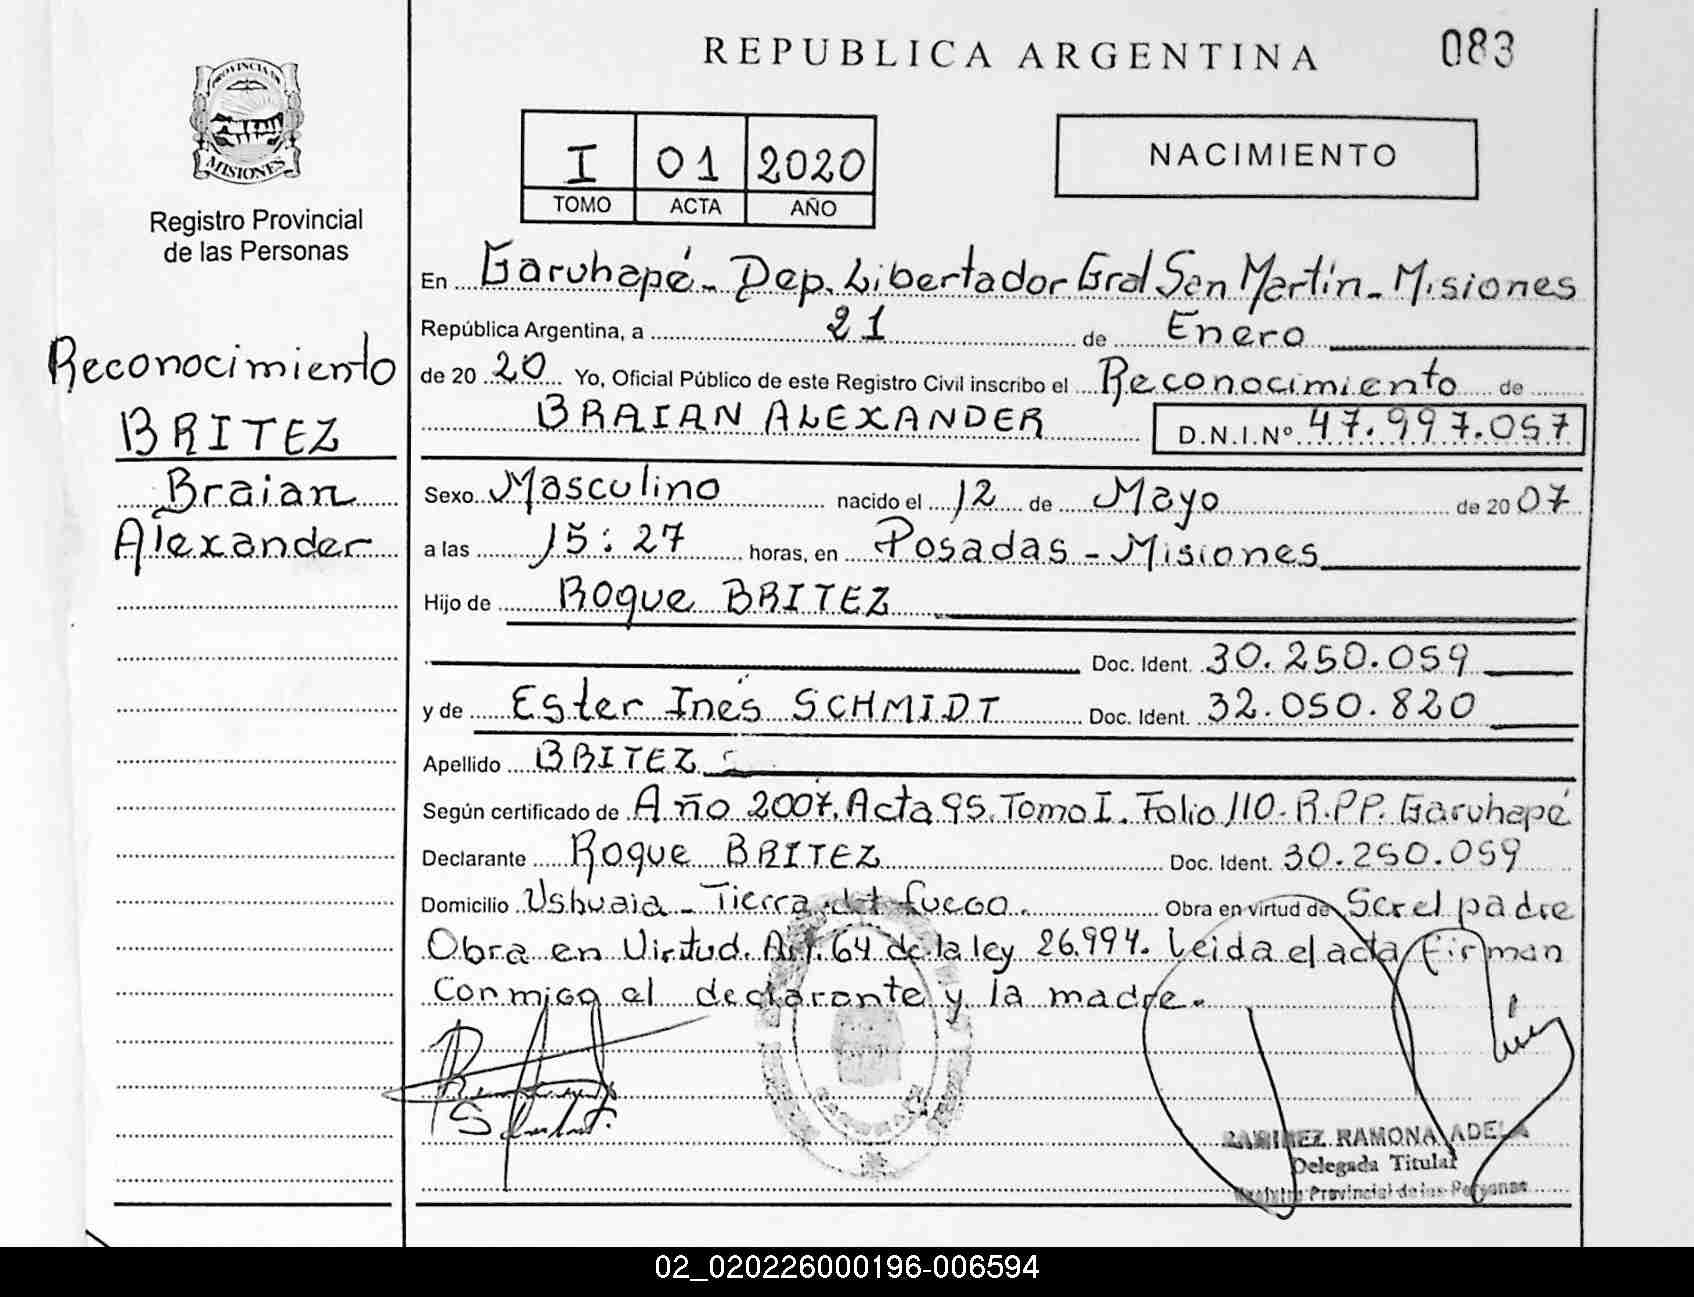 REPUBLICA ARGENTINA
083
PROVINCIA DE
MISIONES
Registro Provincial
de las Personas
I 01 2020
TOMO ACTA AÑO
NACIMIENTO
Reconocimiento
BRITEZ
Braian
Alexander
En Garuhapé - Dep. Libertador Gral San Martín - Misiones
República Argentina, a 21 de Enero
de 20 20 Yo, Oficial Público de este Registro Civil inscribo el Reconocimiento de
BRAIAN ALEXANDER D.N.I.Nº 47.997.057
Sexo Masculino nacido el 12 de Mayo de 20 07
a las 15:27 horas, en Posadas - Misiones
Hijo de Roque BRITEZ
Doc. Ident. 30.250.059
y de Ester Inés SCHMIDT Doc. Ident. 32.050.820
Apellido BRITEZ
Según certificado de Año 2007. Acta 95. Tomo I. Folio 110. R.PP. Garuhapé
Declarante Roque BRITEZ Doc. Ident. 30.250.059
Domicilio Ushuaia - Tierra del fuego. Obra en virtud de Ser el padre
Obra en Virtud. Art. 64 de la ley 26.994. Leida el acta firman
Conmigo el declarante y la madre.
RAMIREZ RAMONA ADELA
Delegada Titular
Registro Provincial de las Personas
02_020226000196-006594